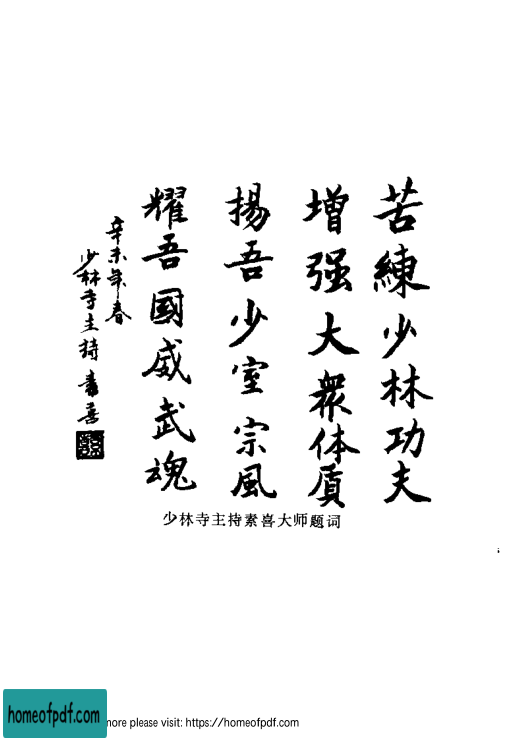 苦練少林功夫
增强大衆体质
揚吾少室宗風
耀吾國威武魂
辛未年春
少林寺主持素喜
少林寺主持素喜大师题词
homeofpdf.com
more please visit: https://homeofpdf.com